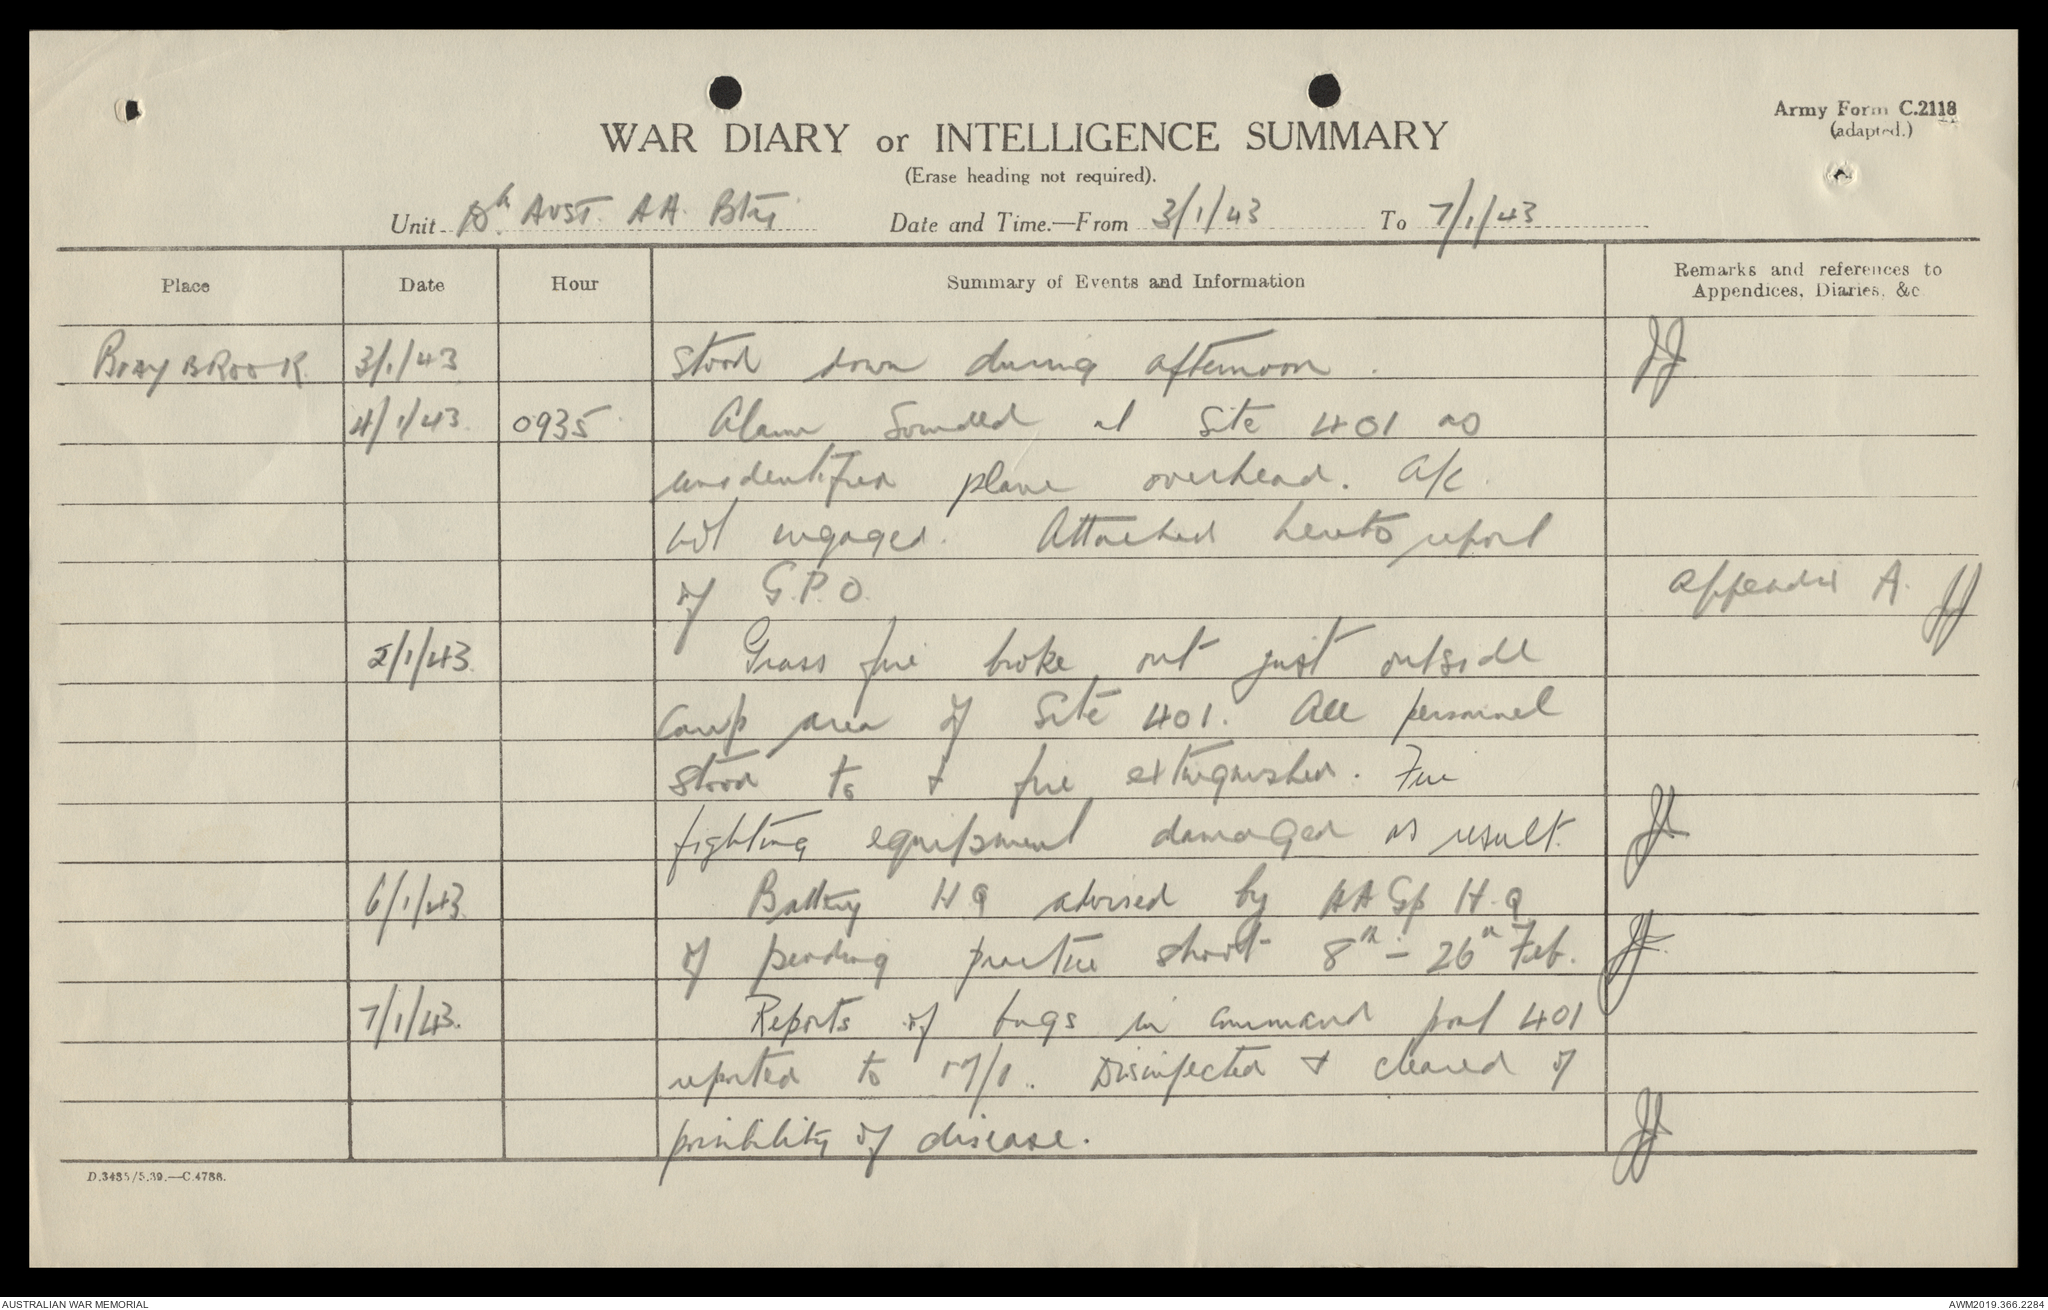 Army Form C.2118
(adapted.)
WAR DIARY or INTELLIGENCE SUMMARY
(Erase heading not required).
Unit Aust. AA. Bty. Date and Time.—From 3/1/43 To 7/1/43
Place Date Hour Summary of Events and Information Remarks and references to Appendices, Diaries, &c
BRAYBROOK 3/1/43 Stood down during afternoon. JJ
4/1/43 0935 Alarm Sounded at Site 401 as
unidentified plane overhead. A/c
not engaged. Attached hereto report
of G.P.O. Appendix A. JJ
5/1/43 Grass fire broke out just outside
Camp area of Site 401. All personnel
stood to & fire extinguished. Fire
fighting equipment damaged as result.
6/1/43 Battery HQ advised by AA Gp H.Q
of pending practice shoot 8th – 26th Feb.
7/1/43. Reports of bugs in command post 401
reported to M/O. Disinfected & cleared of
possibility of disease.
D.3485/5.39.—C.4788.
AUSTRALIAN WAR MEMORIAL AWM2019.366.2284